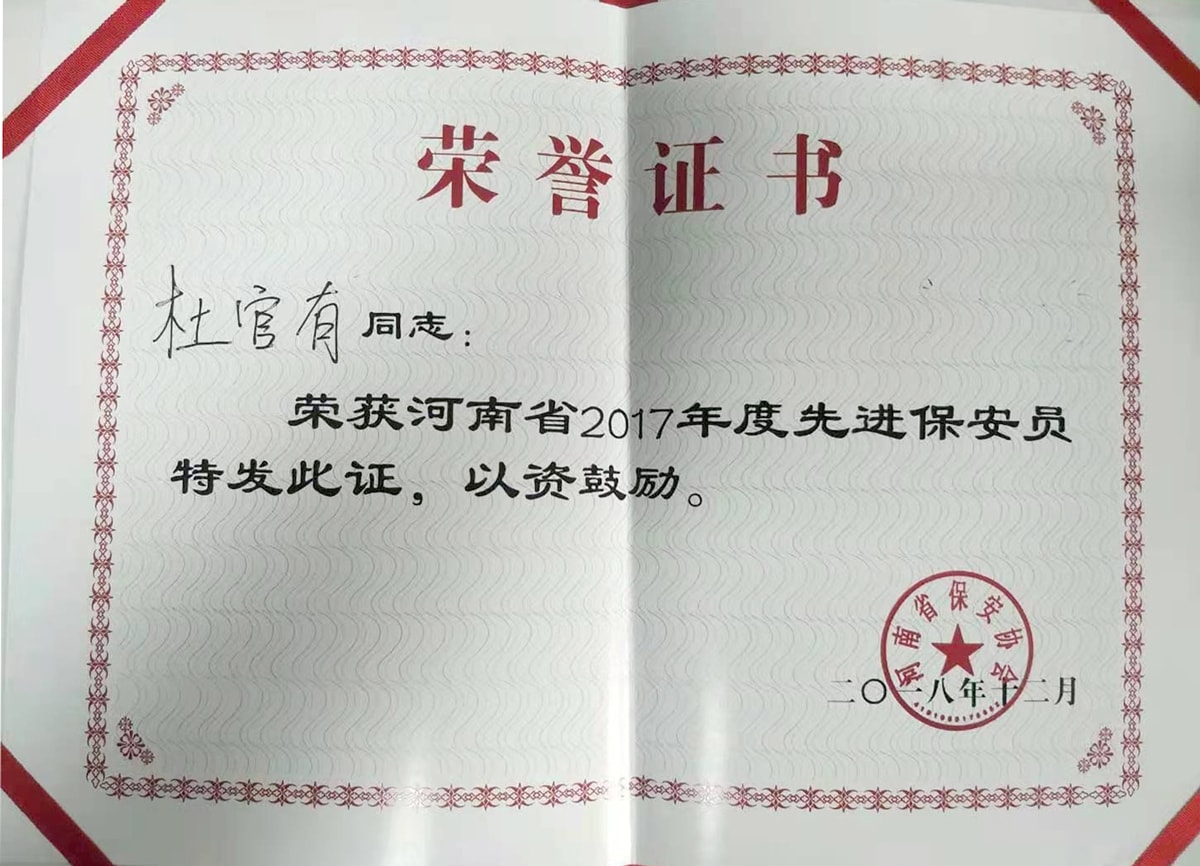 荣誉证书
杜官有同志：
荣获河南省2017年度先进保安员
特发此证，以资鼓励。
河南省保安协会
二〇一八年十二月